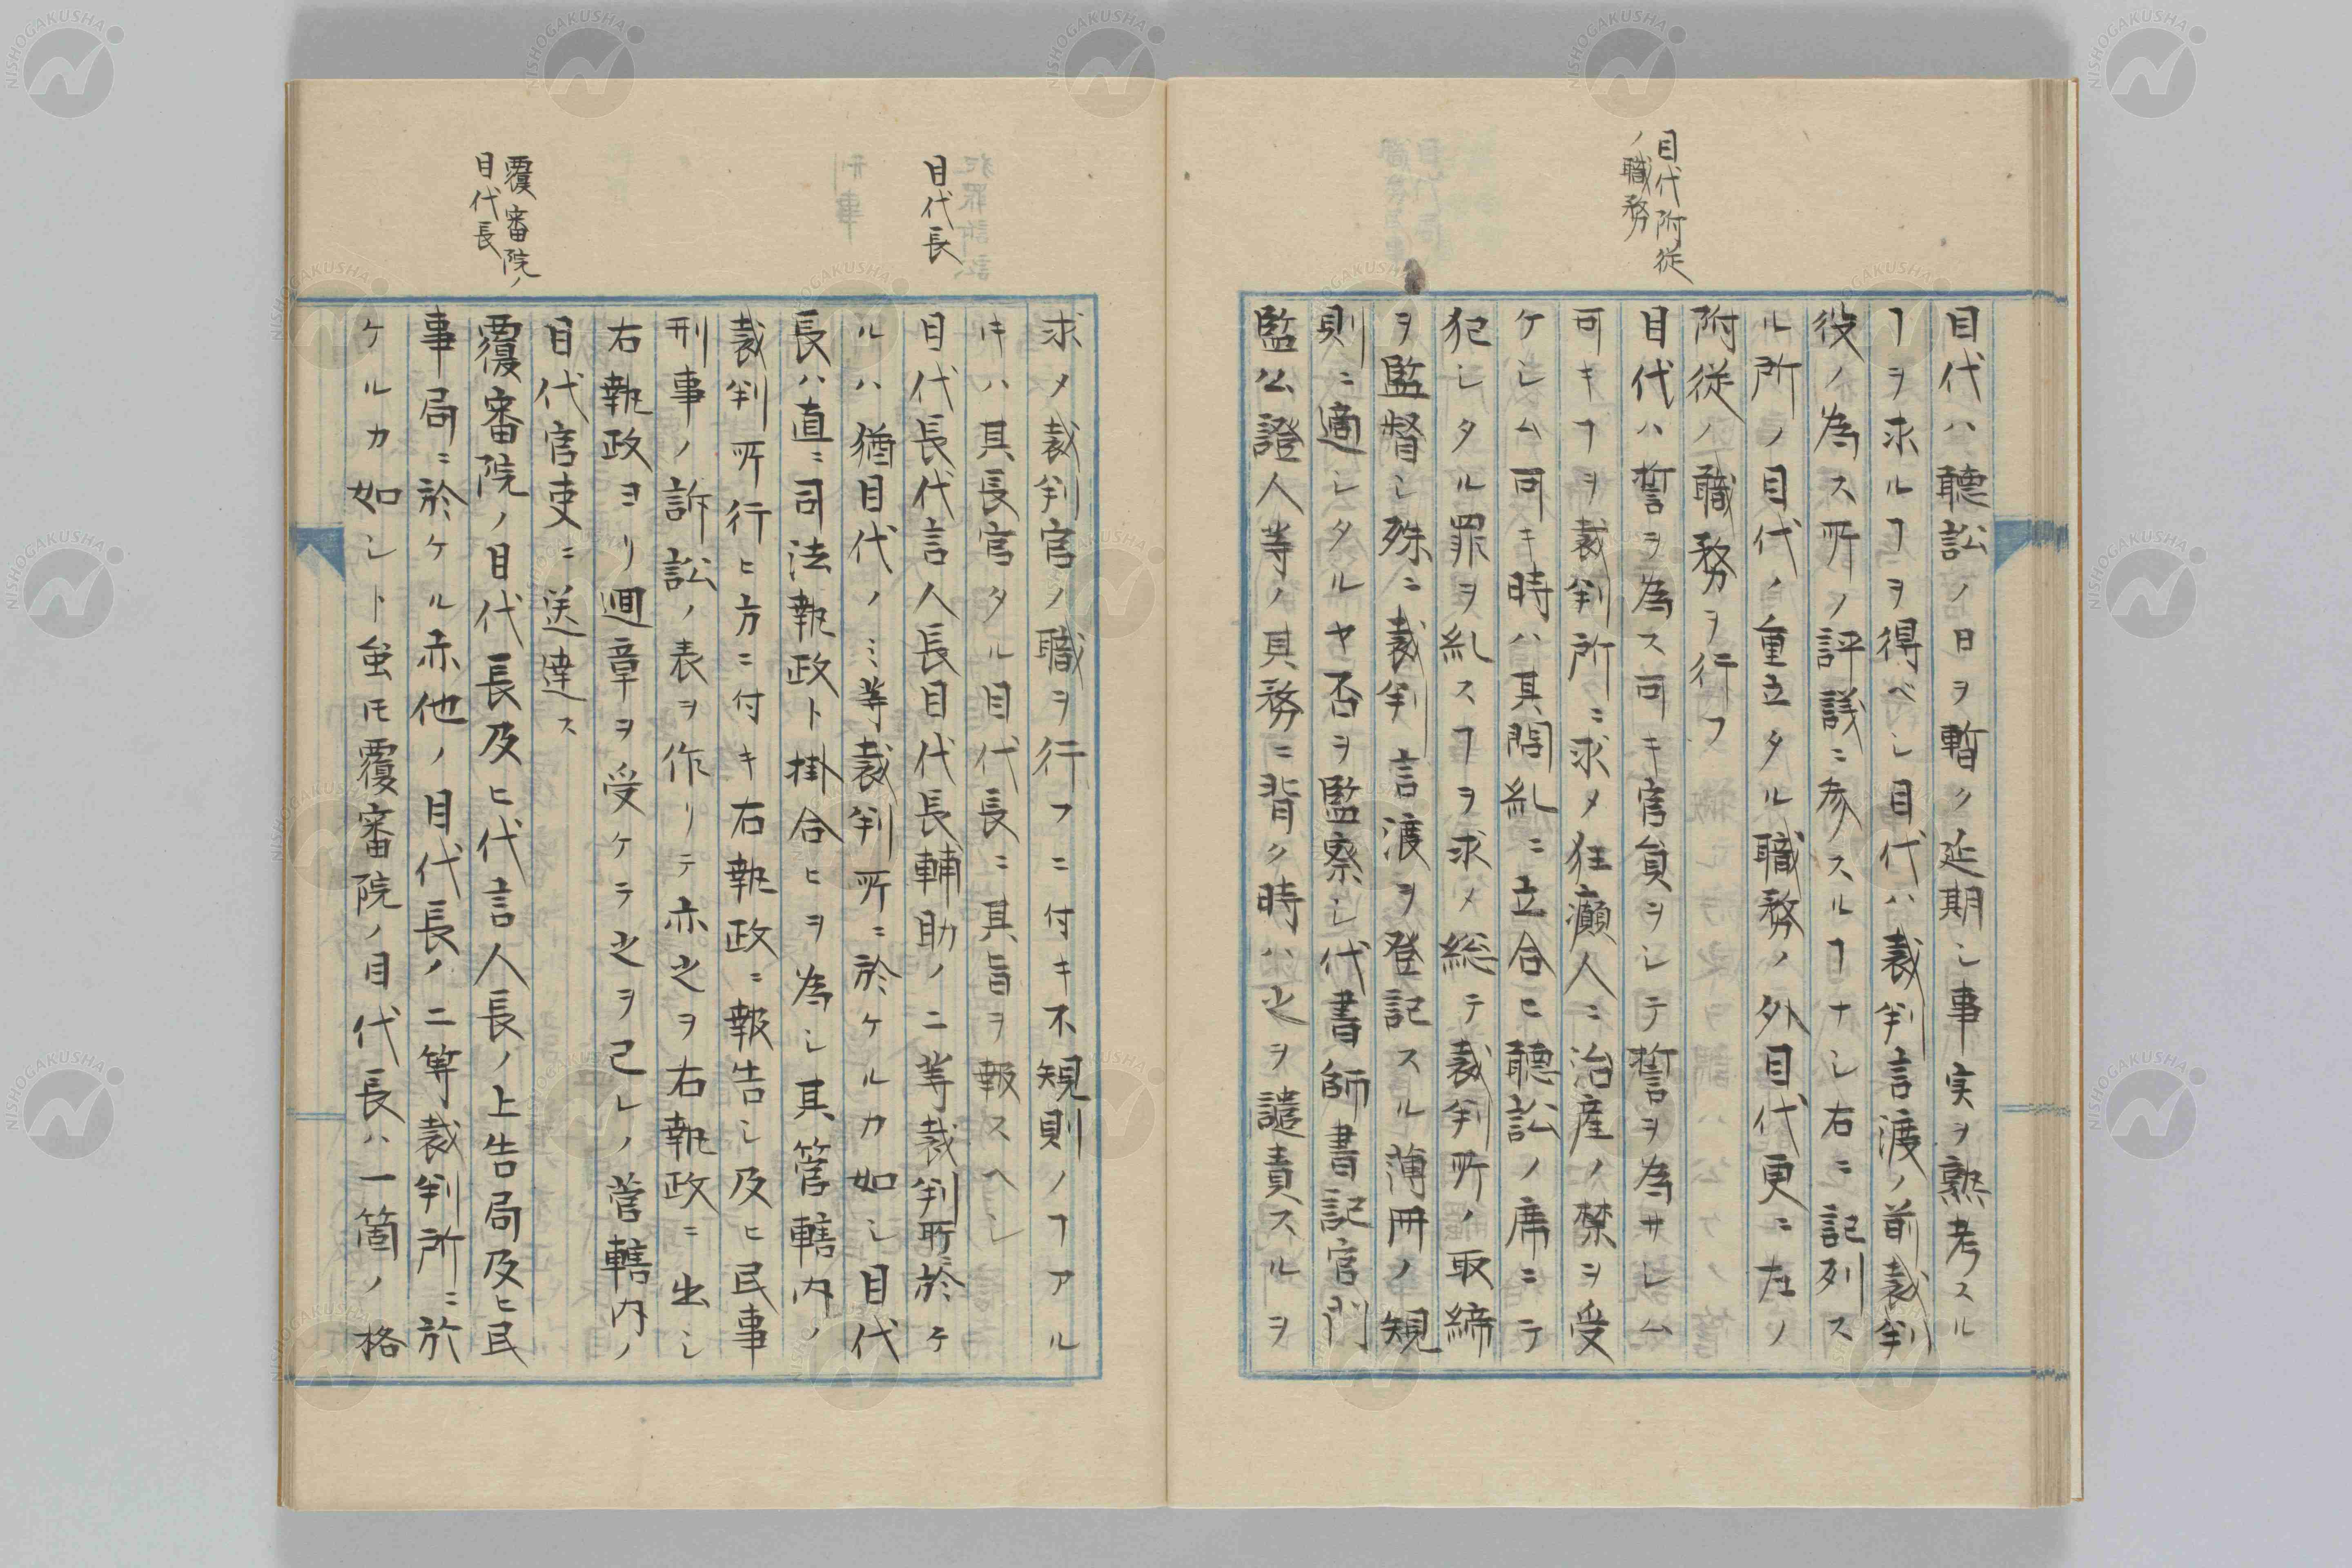 目代附従
ノ職務
目代ハ聴訟ノ日ヲ暫ク延期シ事実ヲ熟考スル
ヿヲ求ルヿヲ得ベシ目代ハ裁判言渡ノ前裁判
役ノ為ス所ノ評議ニ参スルヿナシ右ニ記列ス
ル所ノ目代ノ重立タル職務ノ外目代更ニ左ノ
附従ノ職務ヲ行フ
目代ハ誓ヲ為ス可キ官員ヲシテ誓ヲ為サシム
可キヿヲ裁判所ニ求メ狂癲人ニ治産ノ禁ヲ受
ケシム可キ時ハ其問糺ニ立合ヒ聴訟ノ席ニテ
犯シタル罪ヲ糺スヿヲ求メ総テ裁判所ノ取締
ヲ監督シ殊ニ裁判言渡ヲ登記スル薄冊ノ規
則ニ適シタルヤ否ヲ監察シ代書師書記官門
監公證人等ノ其務ニ背ク時ハ之ヲ譴責スルヲ
目代長
覆審院ノ
目代長
求メ裁判官ノ職ヲ行フニ付キ不規則ノヿアル
キハ其長官タル目代長ニ其旨ヲ報スヘシ
目代長代言人長目代長輔助ノ二等裁判所於ケ
ルハ猶目代ノミ等裁判所ニ於ケルカ如シ目代
長ハ直ニ司法執政ト掛合ヒヲ為シ其管轄内ノ
裁判所行ヒ方ニ付キ右執政ニ報告シ及ヒ民事
刑事ノ訴訟ノ表ヲ作リテ亦之ヲ右執政ニ出シ
右執政ヨリ廻章ヲ受ケテ之ヲ己レノ管轄内ノ
目代官吏ニ送達ス
覆審院ノ目代長及ヒ代言人長ノ上告局及ヒ民
事局ニ於ケル亦他ノ目代長ノ二等裁判所ニ於
ケルカ如シト虽モ覆審院ノ目代長ハ一箇ノ格
NISHOGAKUSHA